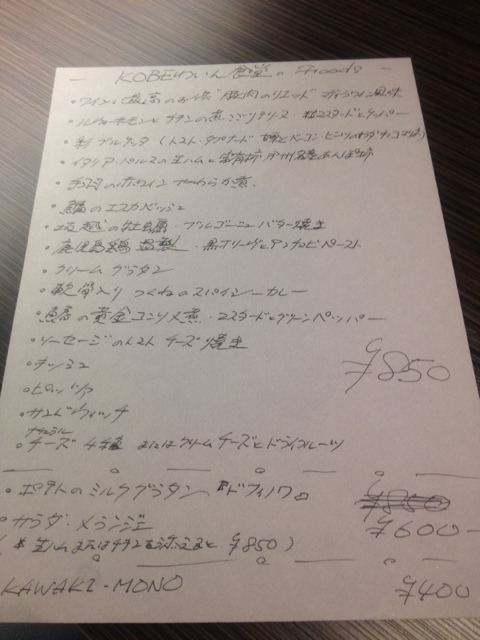 — KOBEわいん食堂の Foods —
・ワインに最高のお供 "豚肉のリエット"
・チキンの煮こごりテリーヌ・粒マスタードとケッパー
・ブルスケッタ (トマト・タプナード
・イタリア・パルマの生ハムと富有柿、あんぽ柿
・赤ワイン やわらか煮
・鯖のエスカベッシュ
・坂越の牡蠣・ブルゴーニュバター焼き
・鹿児島鶏 燻製・黒オリーブとアンチョビペースト
・クリーム グラタン
・軟骨入り つくねのスパイシーカレー
・黄金コンソメ煮・マスタードとグリーンペッパー
・ソーセージのトマト チーズ焼き
・キッシュ
・ピッツァ
¥850
・サンドウィッチ
・ナチュラルチーズ 4種 またはクリームチーズとドライフルーツ
・ポテトのミルクグラタン ドフィノワ ¥850
・サラダ・メランジェ ¥600-
(* 生ハムまたはチキンを添えると ¥850)
KAWAKI-MONO ¥400